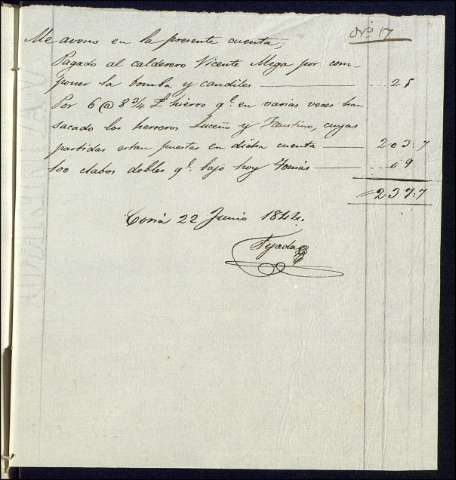 Nº 17
Me avono en la presente cuenta,
Pagado al calderero Vicente Mega por com
poner la bomba y candiles 25
Por 6 @ 8 3/4 L. hierro q.e en varias veces han
sacado los herreros Luceño y Faustino, cuyas
partidas estan puestas en dicha cuenta 203.7
100 clabos dobles q.e bajo hoy Tomás 09
237.7
Coria 22 Junio 1844.
Tejada